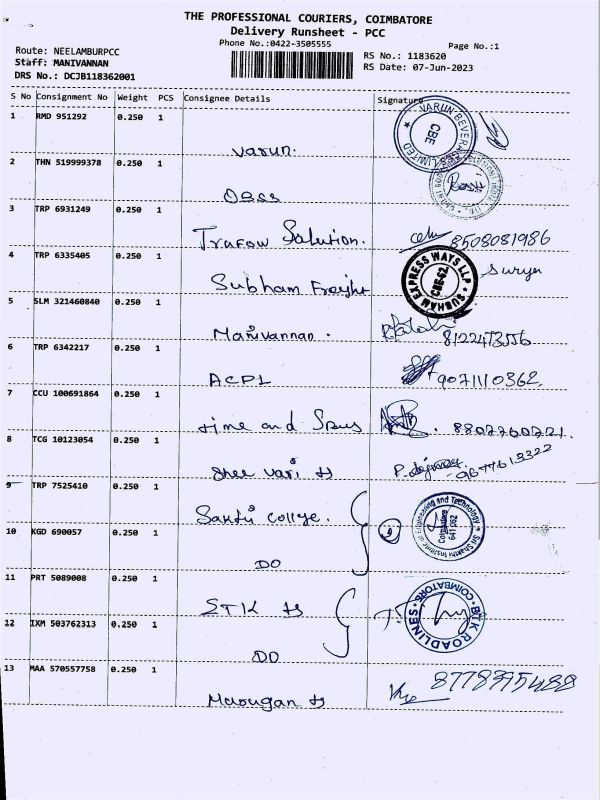 THE PROFESSIONAL COURIERS, COIMBATORE
Delivery Runsheet - PCC
Phone No.:0422-3505555
Page No.:1
Route: NEELAMBURPCC
Staff: MANIVANNAN
DRS No.: DCJB118362001
RS No.: 1183620
RS Date: 07-Jun-2023
S No Consignment No Weight PCS Consignee Details Signature
1 RMD 951292 0.250 1
varun.
VARUN BEVERAGES LIMITED
CBE
2 THN 519999378 0.250 1
3 TRP 6931249 0.250 1
Solution. 8508081986
4 TRP 6335405 0.250 1
Subham Freight
SUBHAM EXPRESS WAYS LLP
CBE-62
Surya
5 SLM 321460840 0.250 1
Manivannan.
6 TRP 6342217 0.250 1
ACPL 9071110362
7 CCU 100691864 0.250 1
time and
8 TCG 10123054 0.250 1
Shee vari
9 TRP 7525410 0.250 1
Sakthi college.
Sri Shakthi Institute of Engineering and Technology
Coimbatore
641 062
10 KGD 690057 0.250 1
DO
11 PRT 5089008 0.250 1
STK
BTK ROADLINES
COIMBATORE
12 IXM 503762313 0.250 1
DO
13 MAA 570557758 0.250 1
Murugan